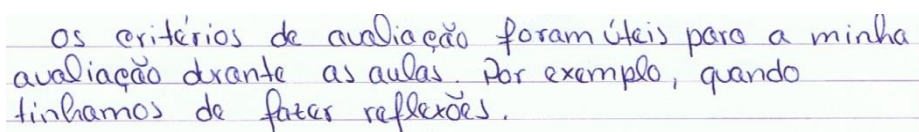 Os critérios de avaliação foram úteis para a minha
avaliação durante as aulas. Por exemplo, quando
tinhamos de fazer reflexões.